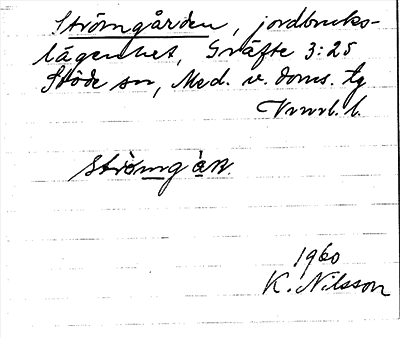 Strömgården, jordbruks-
lägenhet, Gräfte 3:25
Stöde sn, Med. v. doms. tg
Vrnrl. l.
strömgå̀ṇ.
1960
K. Nilsson